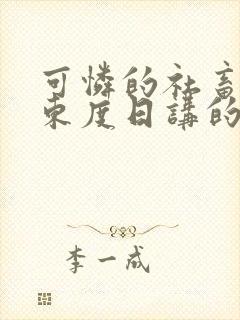 可憐的社畜
東度日講的
李一成